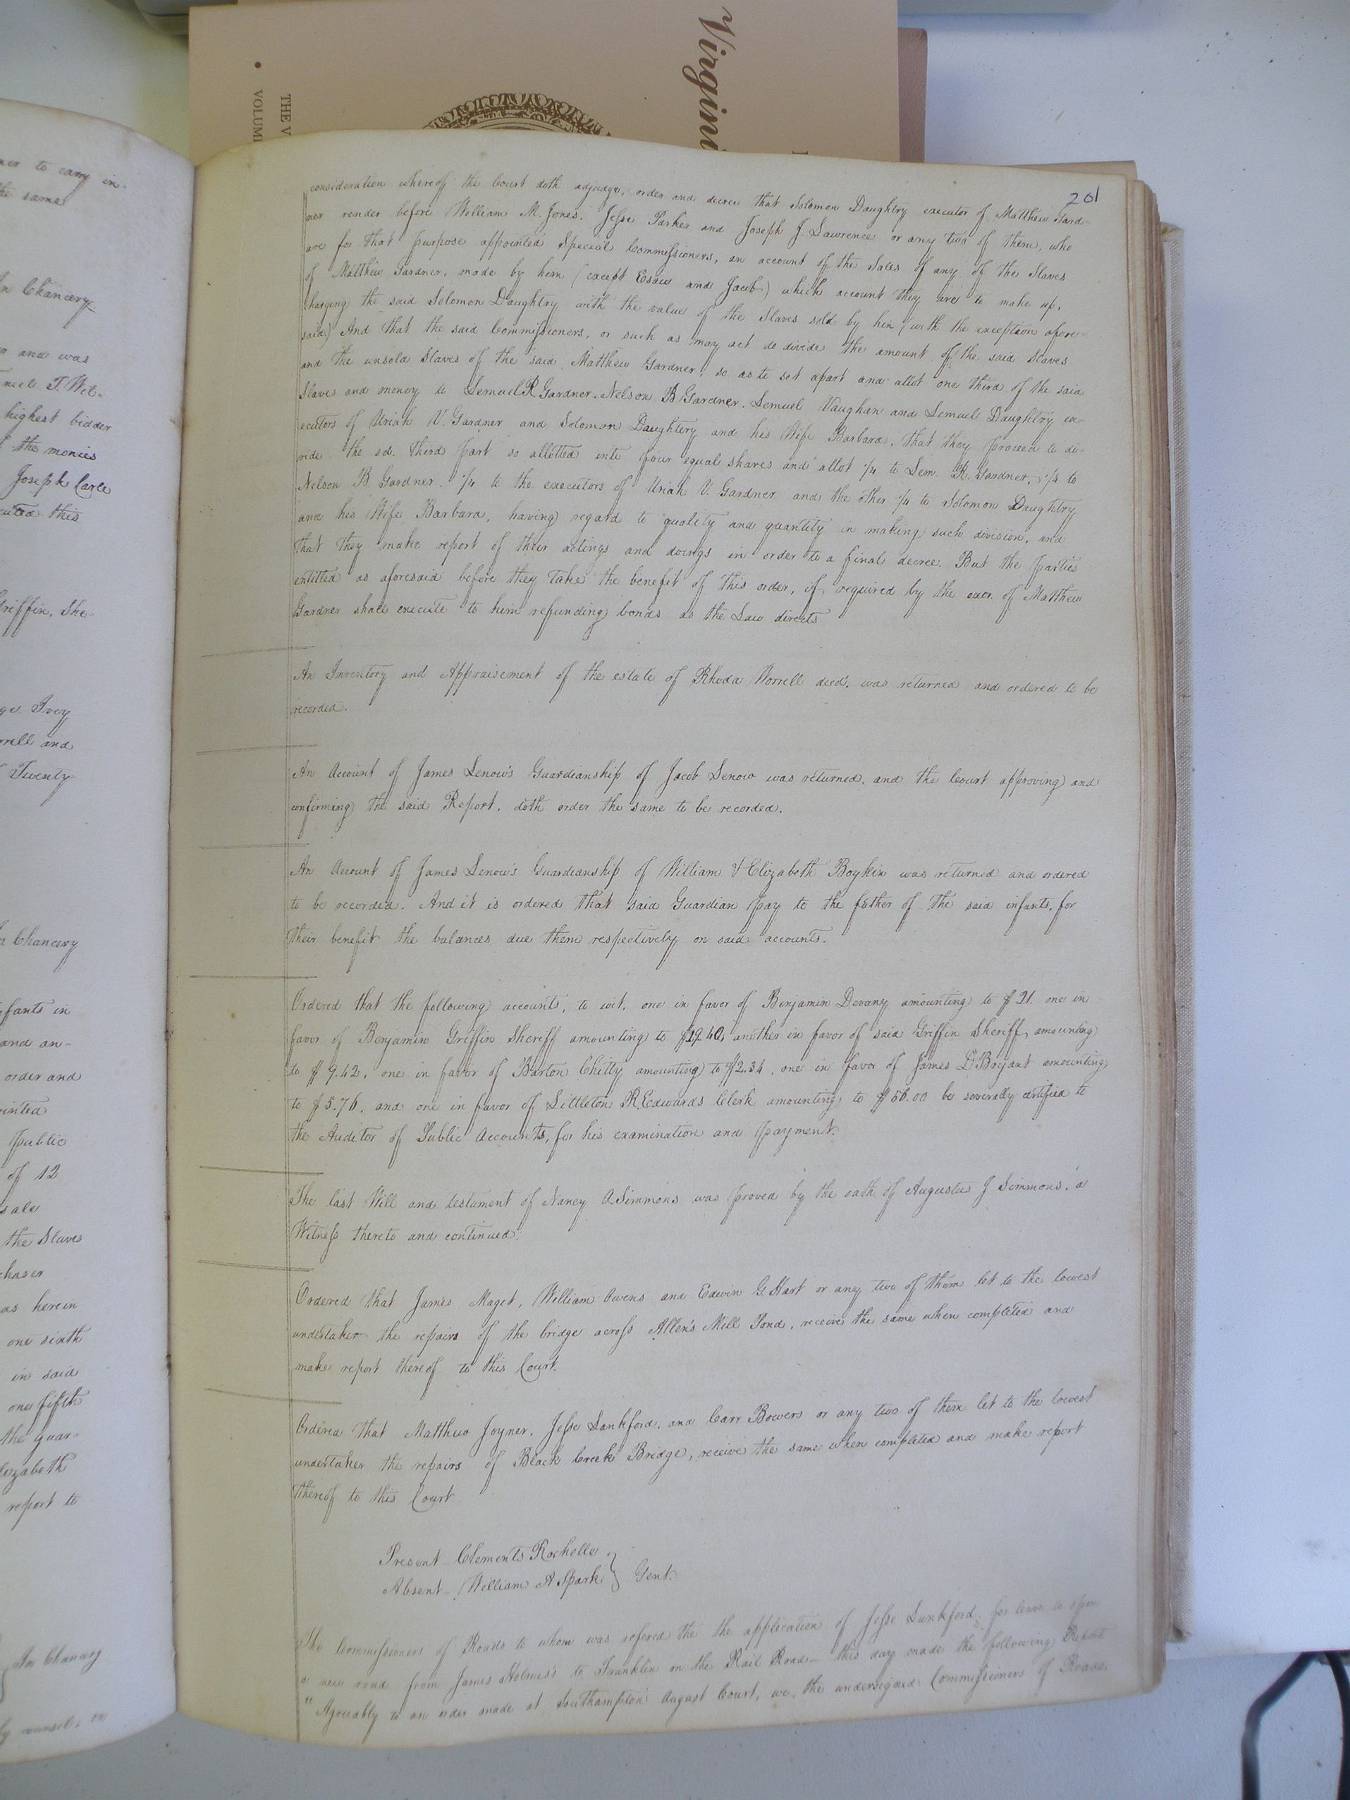 Virgin
THE V
VOLUM
201
consideration whereof the Court doth adjudge, order and decree that Solomon Daughtry executor of Matthew Gard-
ner render before William M. Jones, Jesse Parker and Joseph J Lawrence or any two of them, who
are for that purpose appointed Special Commissioners, an account of the Sales of any of the Slaves
of Matthew Gardner, made by him (except Esau and Jacob) which account they are to make up,
charging the said Solomon Daughtry with the value of the Slaves sold by him (with the exception afore-
said) And that the said Commissioners, or such as may act do divide the amount of the said Slaves
and the unsold Slaves of the said Matthew Gardner, so as to set apart and allot one third of the said
Slaves and money to Lemuel R Gardner, Nelson B Gardner, Lemuel Vaughan and Lemuel Daughtry ex-
ecutors of Uriah V. Gardner and Solomon Daughtery and his Wife Barbara, that they proceed to di-
vide the sd. third part so allotted into four equal shares and allot 1/4 to Lem. R. Gardner, 1/4 to
Nelson B Gardner, 1/4 to the executors of Uriah V. Gardner and the other 1/4 to Solomon Daughtry
and his Wife Barbara, having regard to quality and quantity in making such division, and
that they make report of their actings and doings in order to a final decree. But the parties
entitled as aforesaid before they take the benefit of this order, if required by the exor. of Matthew
Gardner shall execute to him refunding bonds as the Law directs
An Inventory and Appraisement of the estate of Rhoda Worrell decd. was returned and ordered to be
recorded.
An Account of James Lenow's Guardianship of Jacob Lenow was returned, and the Court approving and
confirming the said Report, doth order the same to be recorded.
An Account of James Lenow's Guardianship of William & Elizabeth Boykin was returned and ordered
to be recorded. And it is ordered that said Guardian pay to the father of the said infants, for
their benefit the balances due them respectively on said accounts.
Ordered that the following accounts, to wit, one in favor of Benjamin Devany amounting to $21. one in
favor of Benjamin Griffin Sheriff amounting to $19.40, another in favor of said Griffin Sheriff, amounting
to $9.42, one in favor of Barton Chitty amounting to $2.34, one in favor of James D Bryant amounting
to $5.76, and one in favor of Littleton R Edwards Clerk amounting to $56.00 be severally certified to
the Auditor of Public Accounts, for his examination and payment.
The last Will and testament of Nancy A Simmons was proved by the oath of Augusta J Simmons, a
Witness thereto and continued.
Ordered that James Maget, William Owens and Edwin G Hart or any two of them let to the lowest
undertaker the repairs of the bridge across Allen's Mill Pond, receive the same when completed and
make report thereof to this Court.
Ordered that Matthew Joyner, Jesse Lankford, and Carr Bowers or any two of them let to the lowest
undertaker the repairs of Black Creek Bridge, receive the same when completed and make report
thereof to this Court
Present Clements Rochelle
Absent William A Spark } Gent.
The Commissioners of Roads to whom was refered the the application of Jesse Lankford, for leave to open
a new road from James Holmes's to Franklin on the Rail Road this day made the following Report
"Agreeably to an order made at Southampton August Court, we, the undersigned Commissioners of Roads
ner to carry in-
the same
In Chancery
and was
highest bidder
the monies
Joseph Carle
this
Griffin, She-
Ivey
rrell and
Twenty
Chancery
fants in
and an-
order and
public
of 12
sale
the Slaves
chaser
as herein
one sixth
in said
one fifth
the guar-
lizabeth
report to
In Chancery